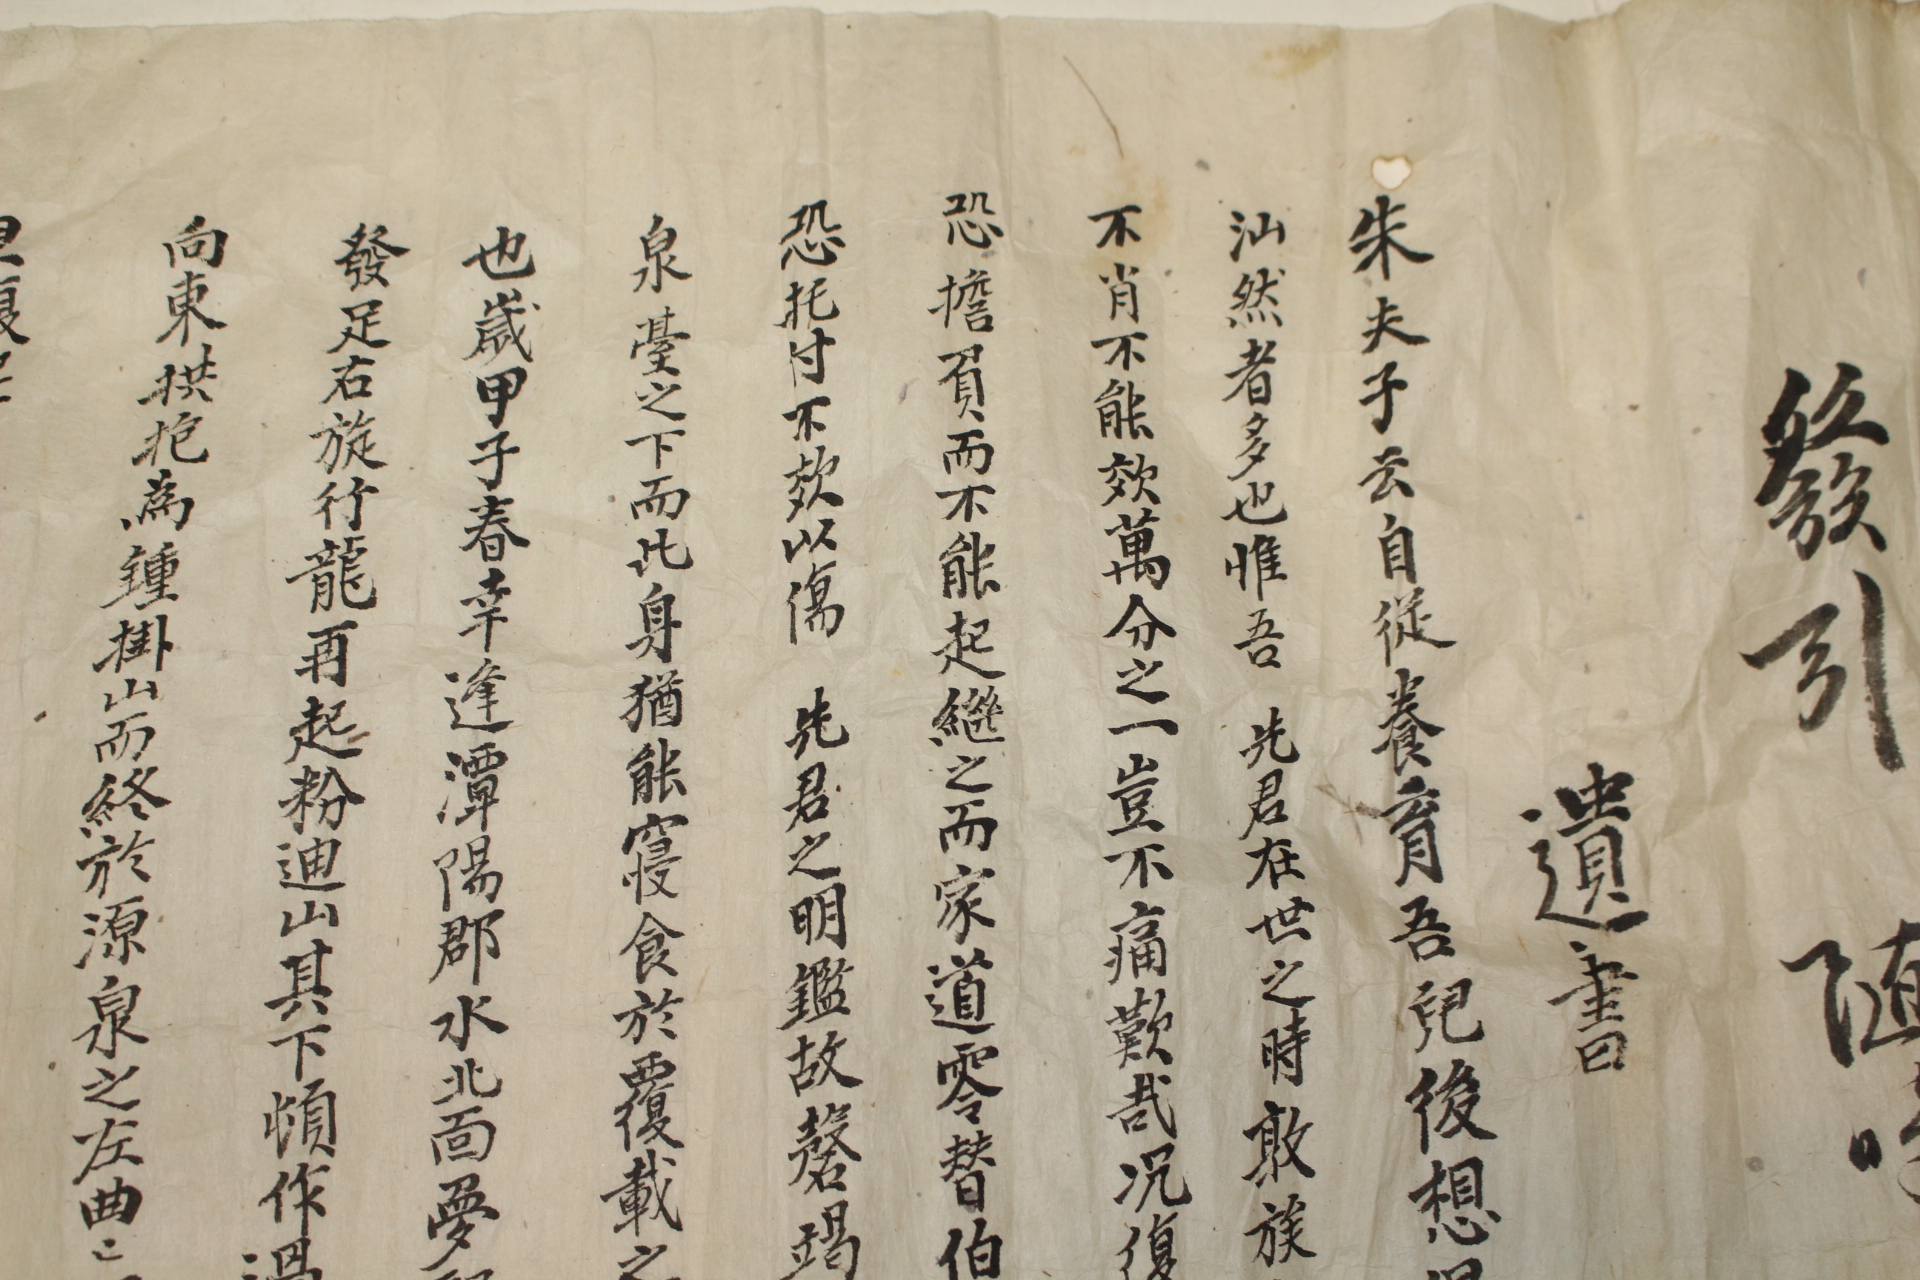 發引
隨
遺書曰
朱夫子云自從養育吾兒後想
汕然者多也惟吾 先君在世之時敢族
不肖不能效萬分之一豈不痛歎哉况復
恐擔負而不能起繼之而家道零替伯
恐托付不效以傷 先君之明鑑故罄竭
泉臺之下而此身猶能寢食於覆載之
也歲甲子春幸逢潭陽郡水北面夢
發足右旋行龍再起粉迪山其下頓作渴
向東拱抱為鍾掛山而終於源泉之左曲